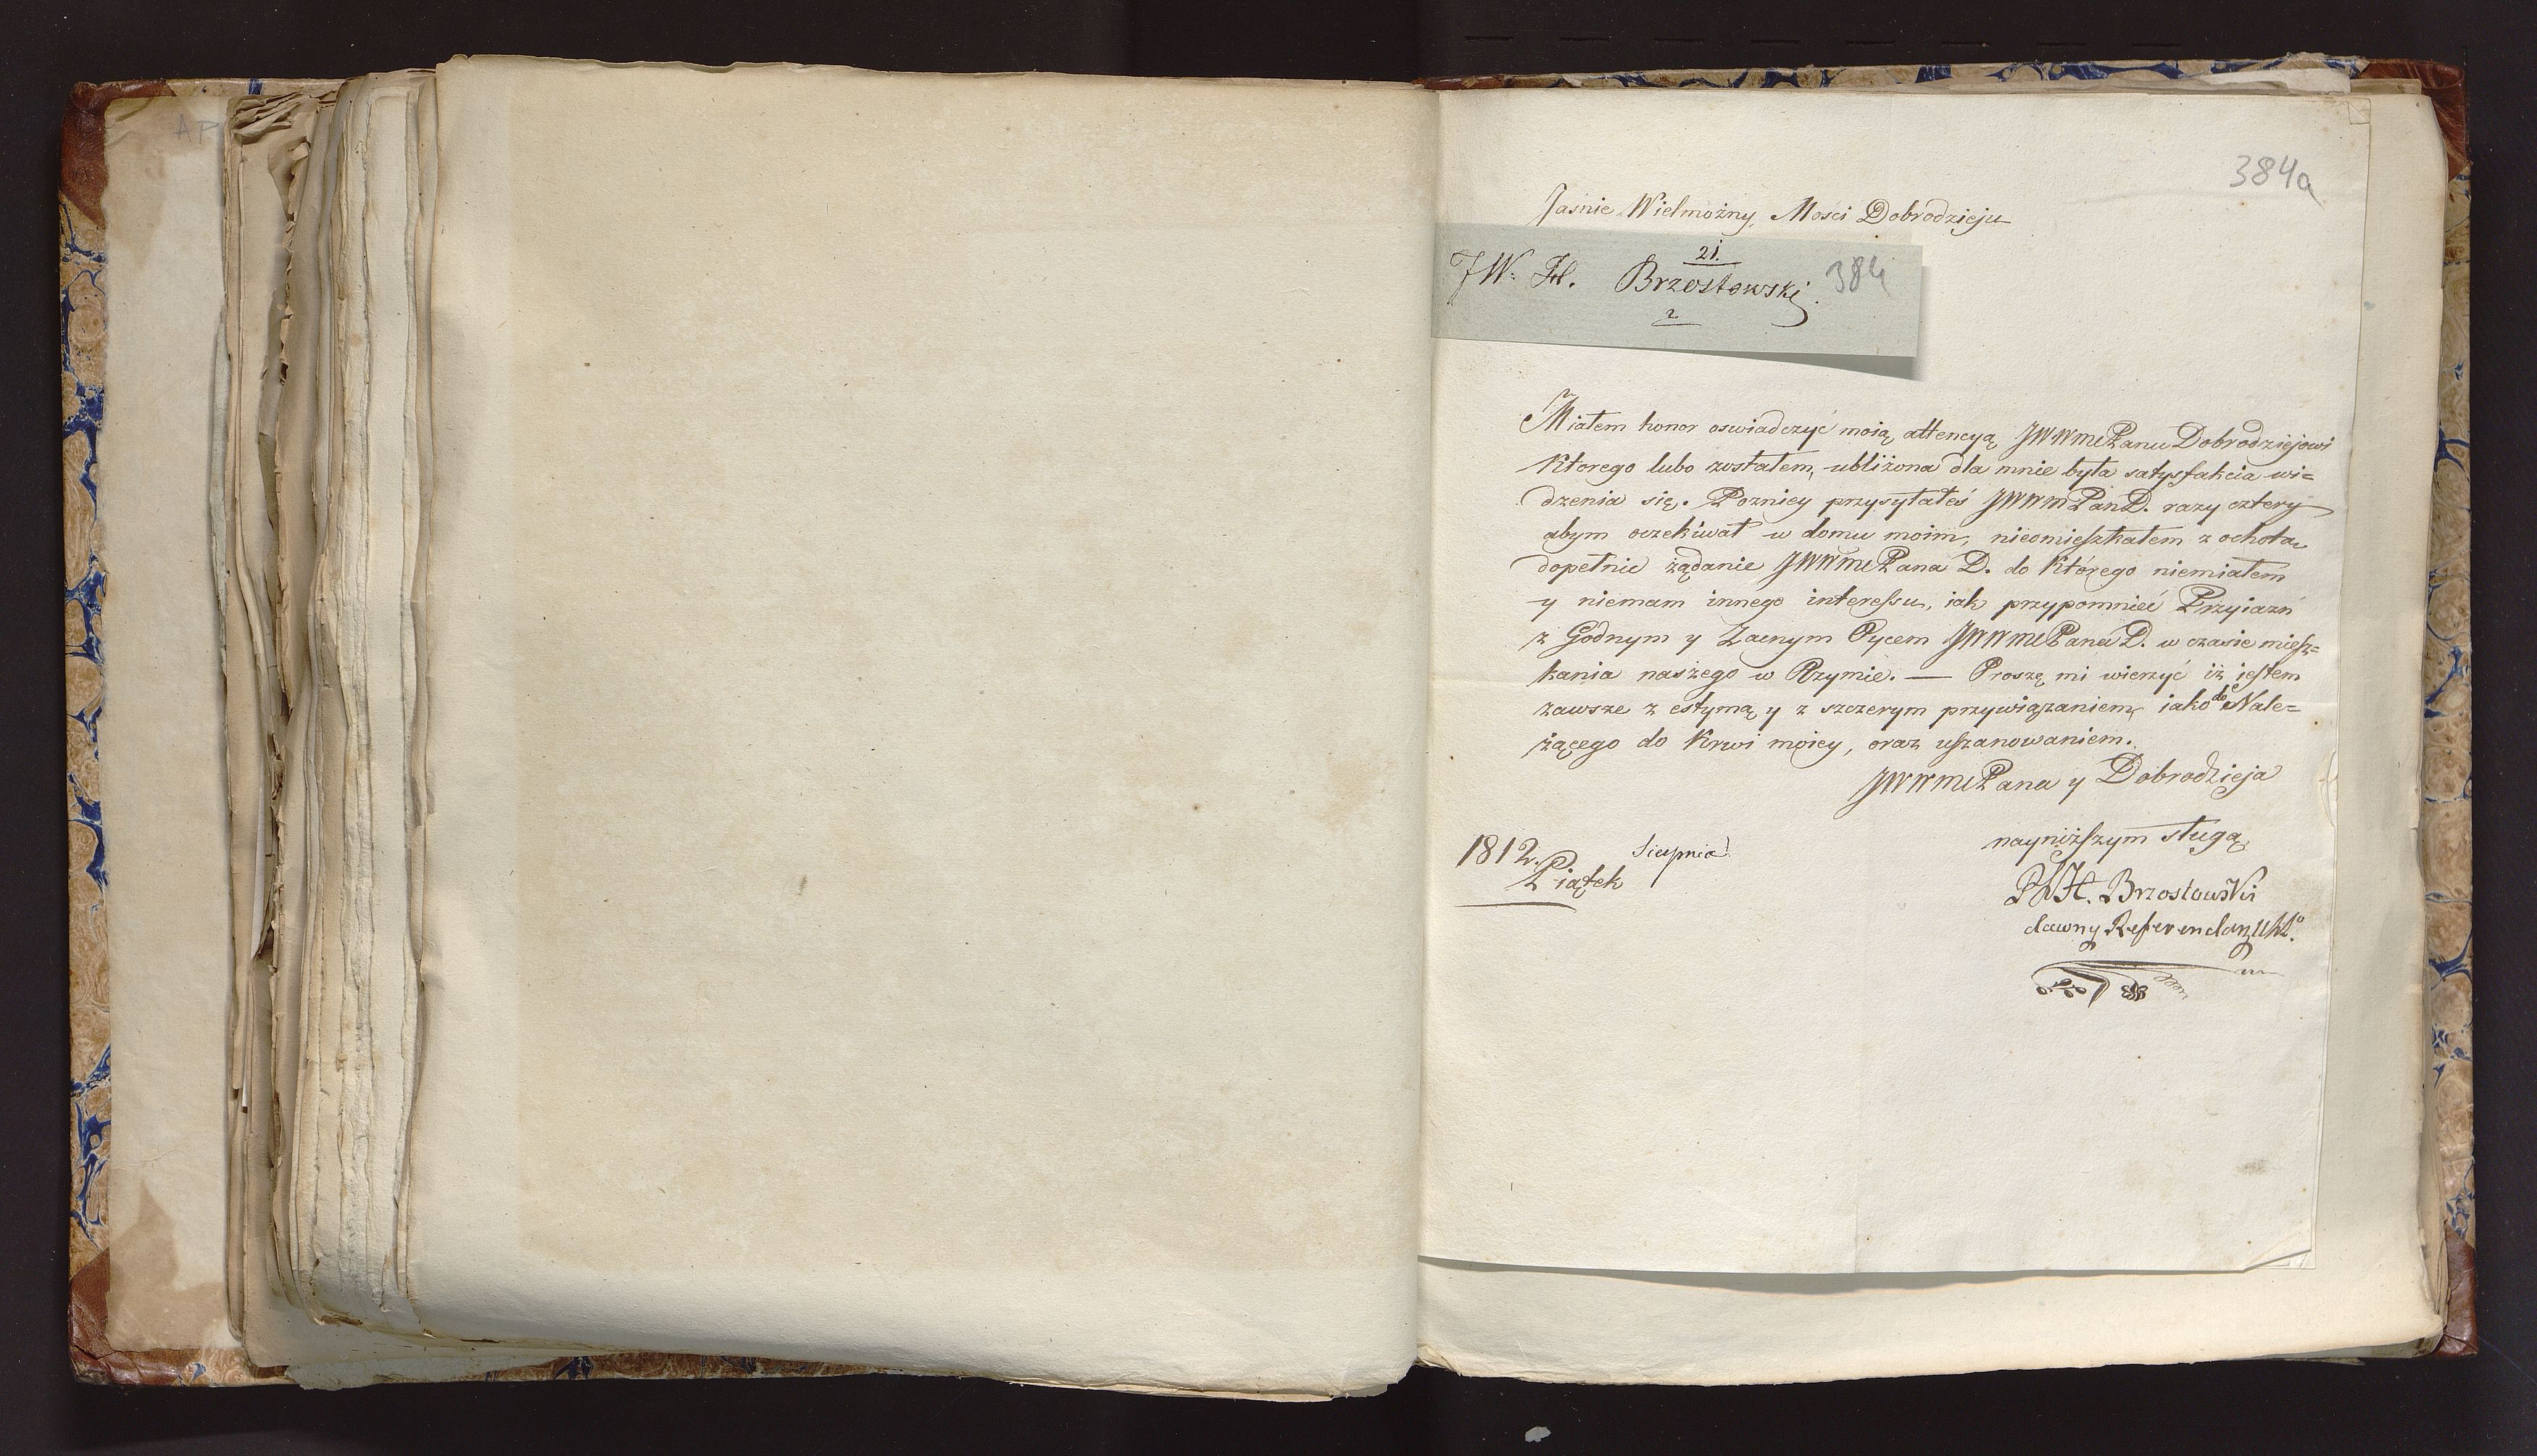 AP
384a
Jaśnie Wielmożny, Mosci Dobrodzieju
21.
JW: Brzostowski. 384
2
Miałem honor oswiadczyć moią attencyą JWWmPanu Dobrodziejowi
Ktorego lubo zostałem, ubliżona dla mnie była satysfakcia wi=
dzenia się. Pozniey przysyłałeś JWWmPanD. razy cztery
abym oczekiwał w domu moim, nieomieszkałem z ochotą
dopełnić żądanie JWWmPana D. do Którego niemiałem
y niemam innego interessu, iak przypomnieć Przyiazń
z Godnym y Zacnym Oycem JWWmPana D. w czasie miesz=
kania naszego w Rzymie. — Proszę mi wierzyć iż iestem
zawsze z estymą y z szczerym przywiązaniem, iako do Nale=
żącego do Krwi moiey, oraz uszanowaniem.
JWWmPana y Dobrodzieja
1812. Sierpnia
Piątek
nayniższym sługą
Brzostowski
dawny Referendarz